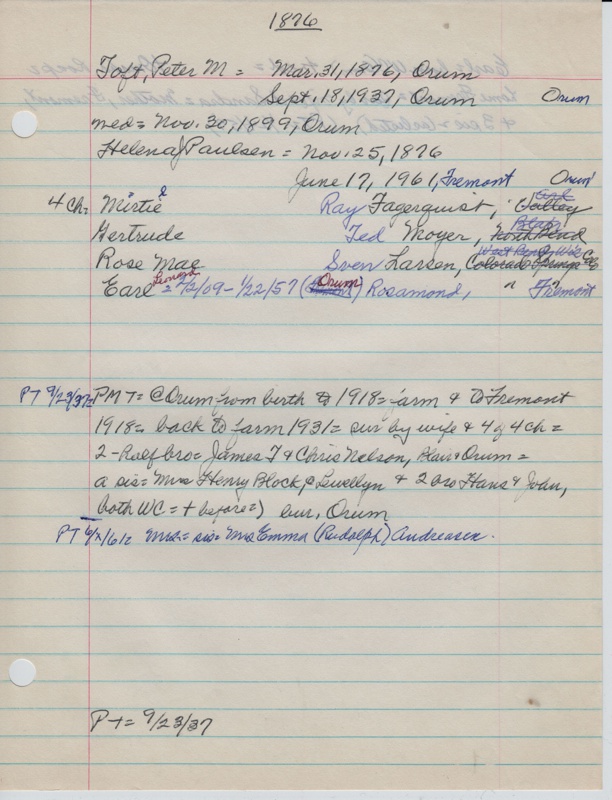 1876
Toft, Peter M = Mar. 31, 1876, Orum
Sept. 18, 1937, Orum Orum
med = Nov. 30, 1899, Orum
Helena J Paulsen = Nov. 25, 1876
June 17, 1961, Fremont Orum
4 ch = Mirtie Ray Fagerquist, Valley
Gertrude Ted Moyer, Blair North Bend
Rose Mae Sven Larsen, Colorado Springs Colo
Earl Leonard = 2/2/09 - 1/22/57 (Orum) Rosamond, " Fremont
PT 9/23/37 = PMT = @ Orum from birth to 1918 = farm & to Fremont
1918 = back to farm 1931 = sur by wife & 4 of 4 ch =
2 - half bro = James T & Chris Nelson, Blair & Orum =
a sis = Mrs Henry Block, Lewellyn & 2 bro Hans & John,
both WC = + before =) bur, Orum
PT 6/ /61 = Mrs = sis = Mrs Emma (Rudolph) Andreasen.
PT = 9/23/37